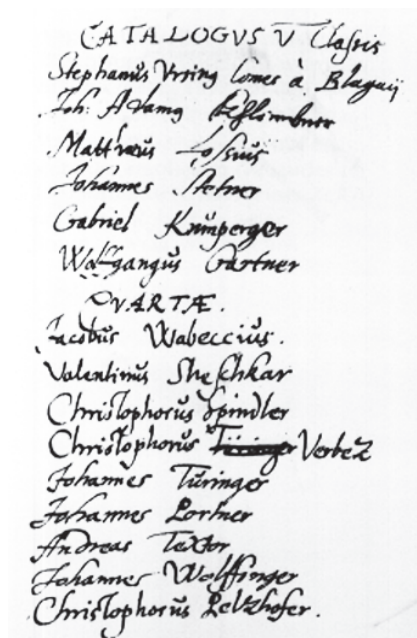 CATALOGVS V Classis
Stephanus Vrsinq Comes à Blagaÿ
Joh: Adamq
Matthæus Lossiŭs
Johannes Stetner
Gabriel Knŭmperger
Wolfgangŭs Gartner
QVARTÆ.
Jacobŭs Wabeccius.
Valentinus Sheschkar
Christophorŭs Spindler
Christophorŭs Tŭringer Verbez
Johannes Tŭringer
Johannes Lortner
Andreas Textor
Johannes Wolffinger
Christophorŭs Pelzhofer.